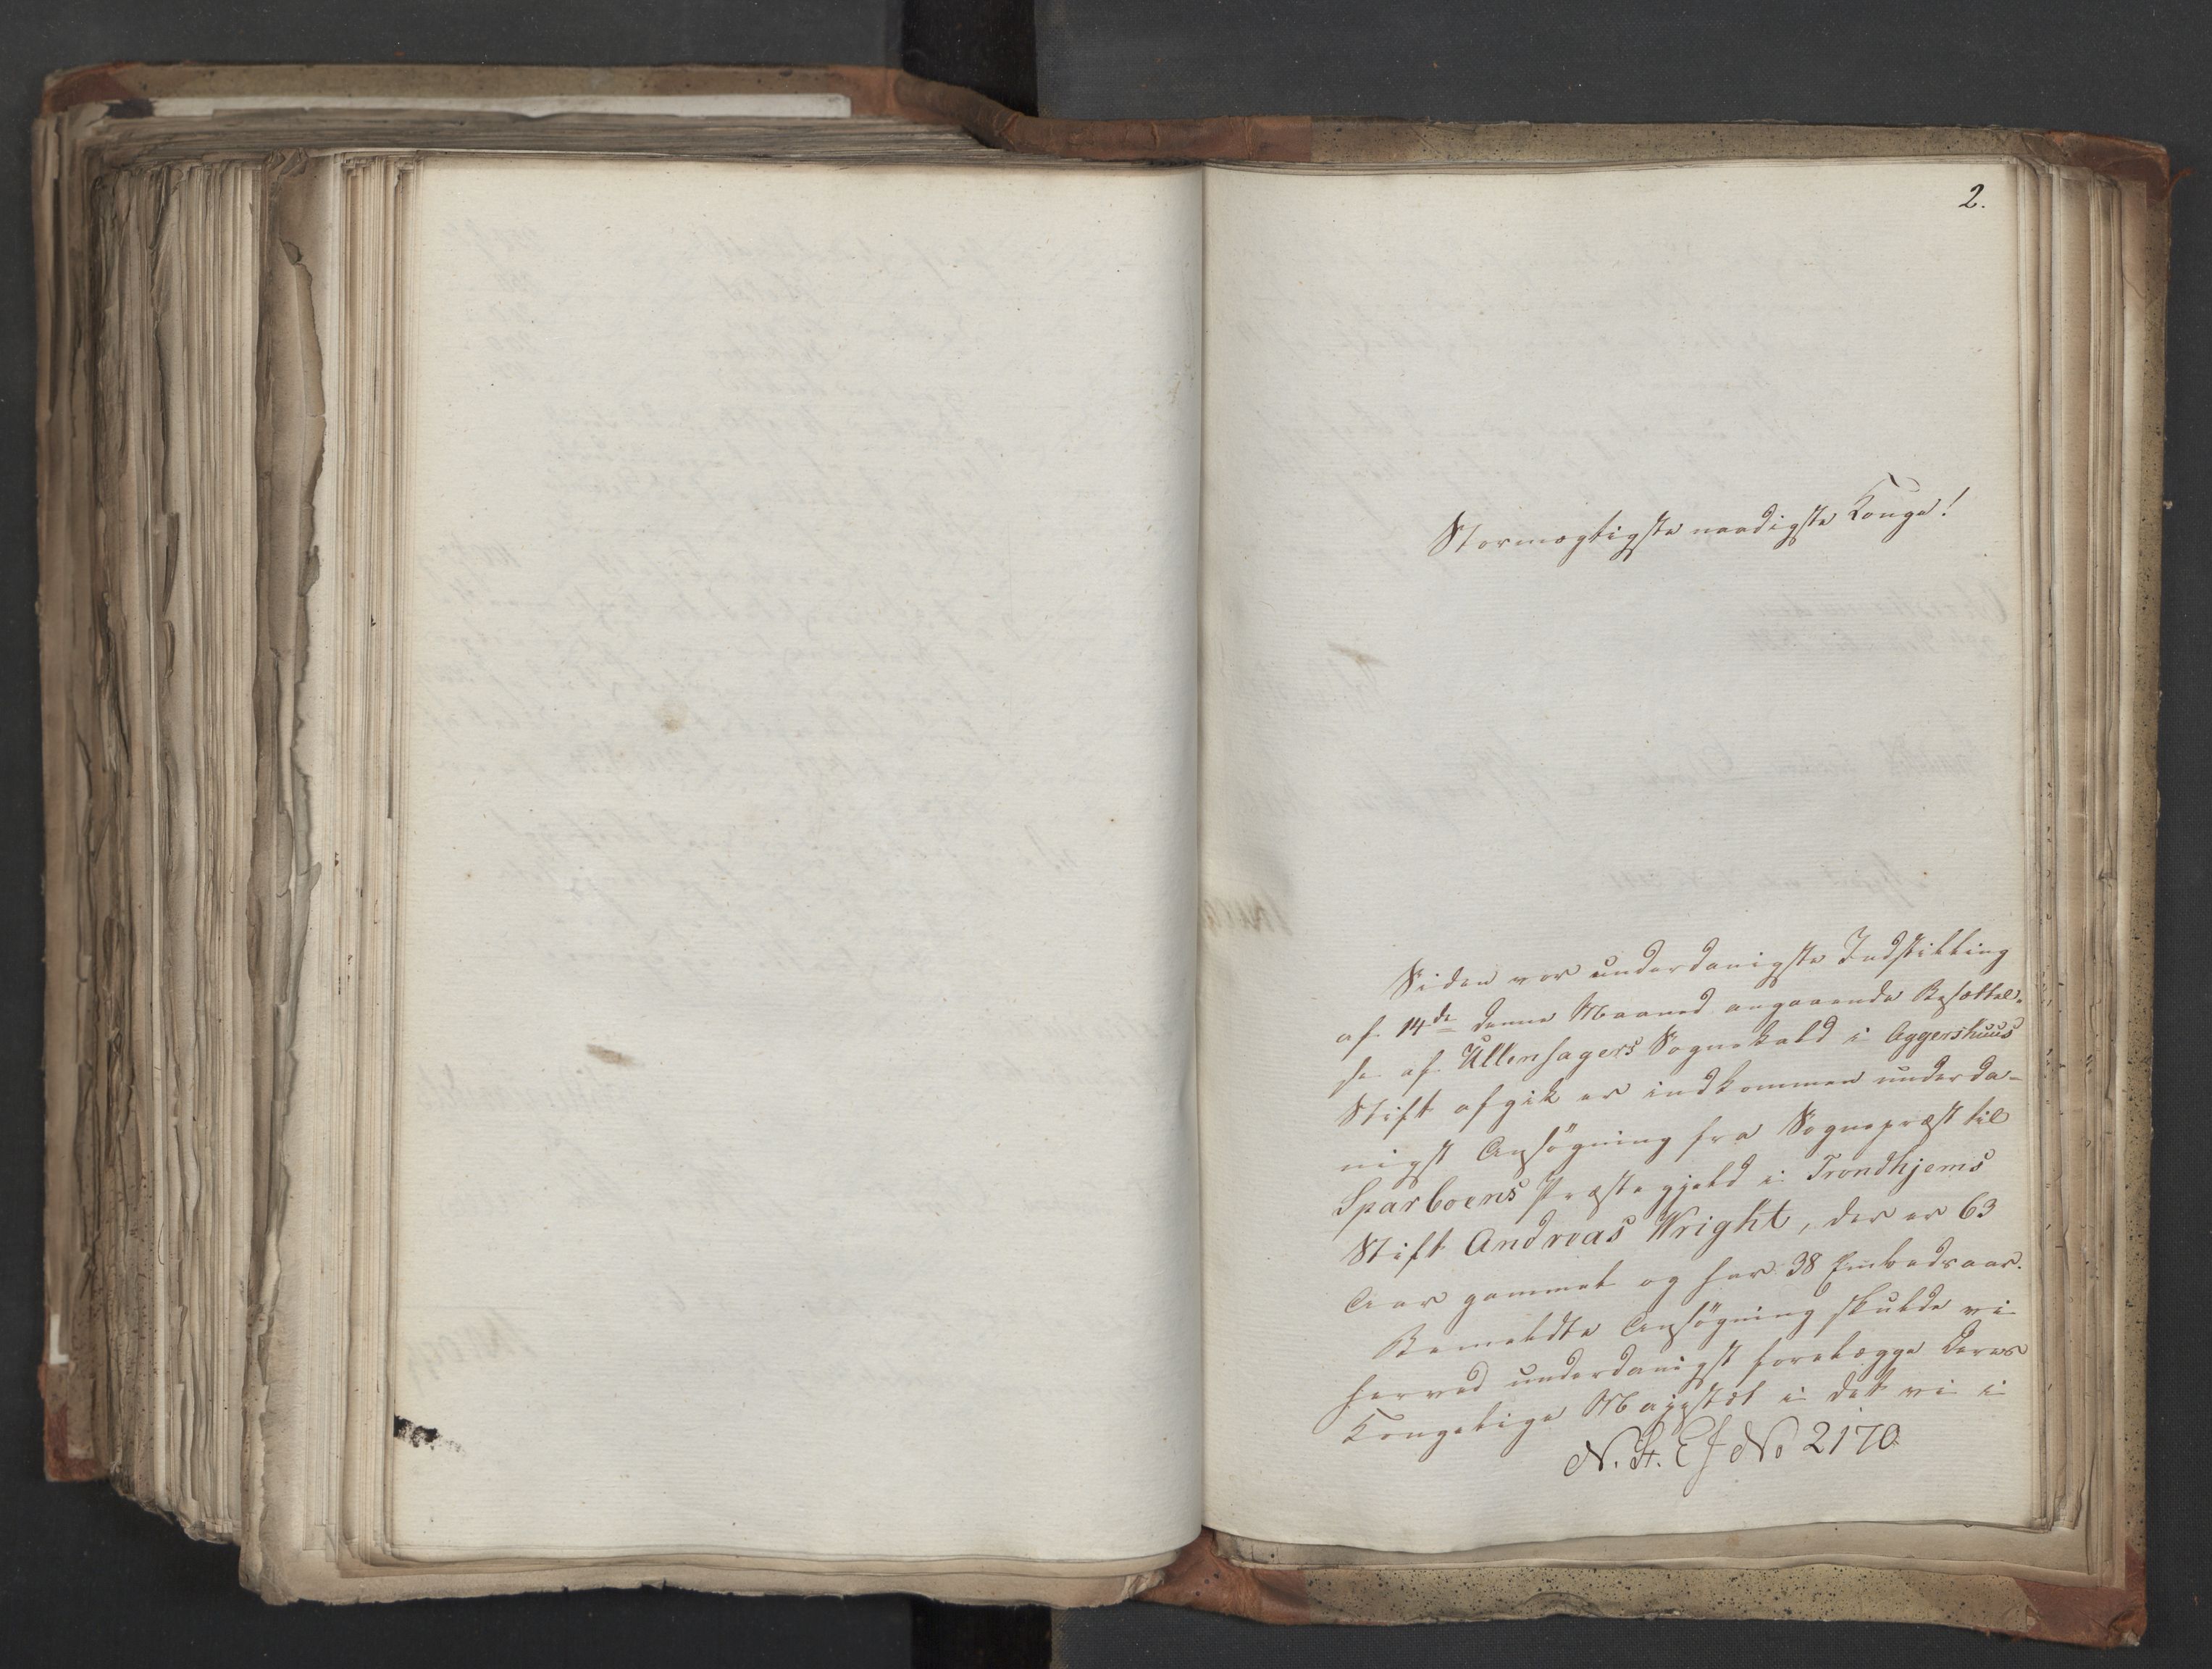 2.
Stormægtigste naadigste Konge!
Siden vor underdanigste Indstilling
af 14de denne Maaned angaaende Besættel-
se af Ullensagers Sognekald i Aggershuus
Stift afgik er indkommen underda-
nigst Ansøgning fra Sognepræst til
Sparboens Præstegjeld i Trondhjems
Stift Andreas Wright, der er 63
Aar gammel og har 38 Embedsaar.
Bemeldte Ansøgning skulde vi
herved underdanigst forelægge Deres
Kongelige Majestæt i det vi i
N. St. E J No 2170